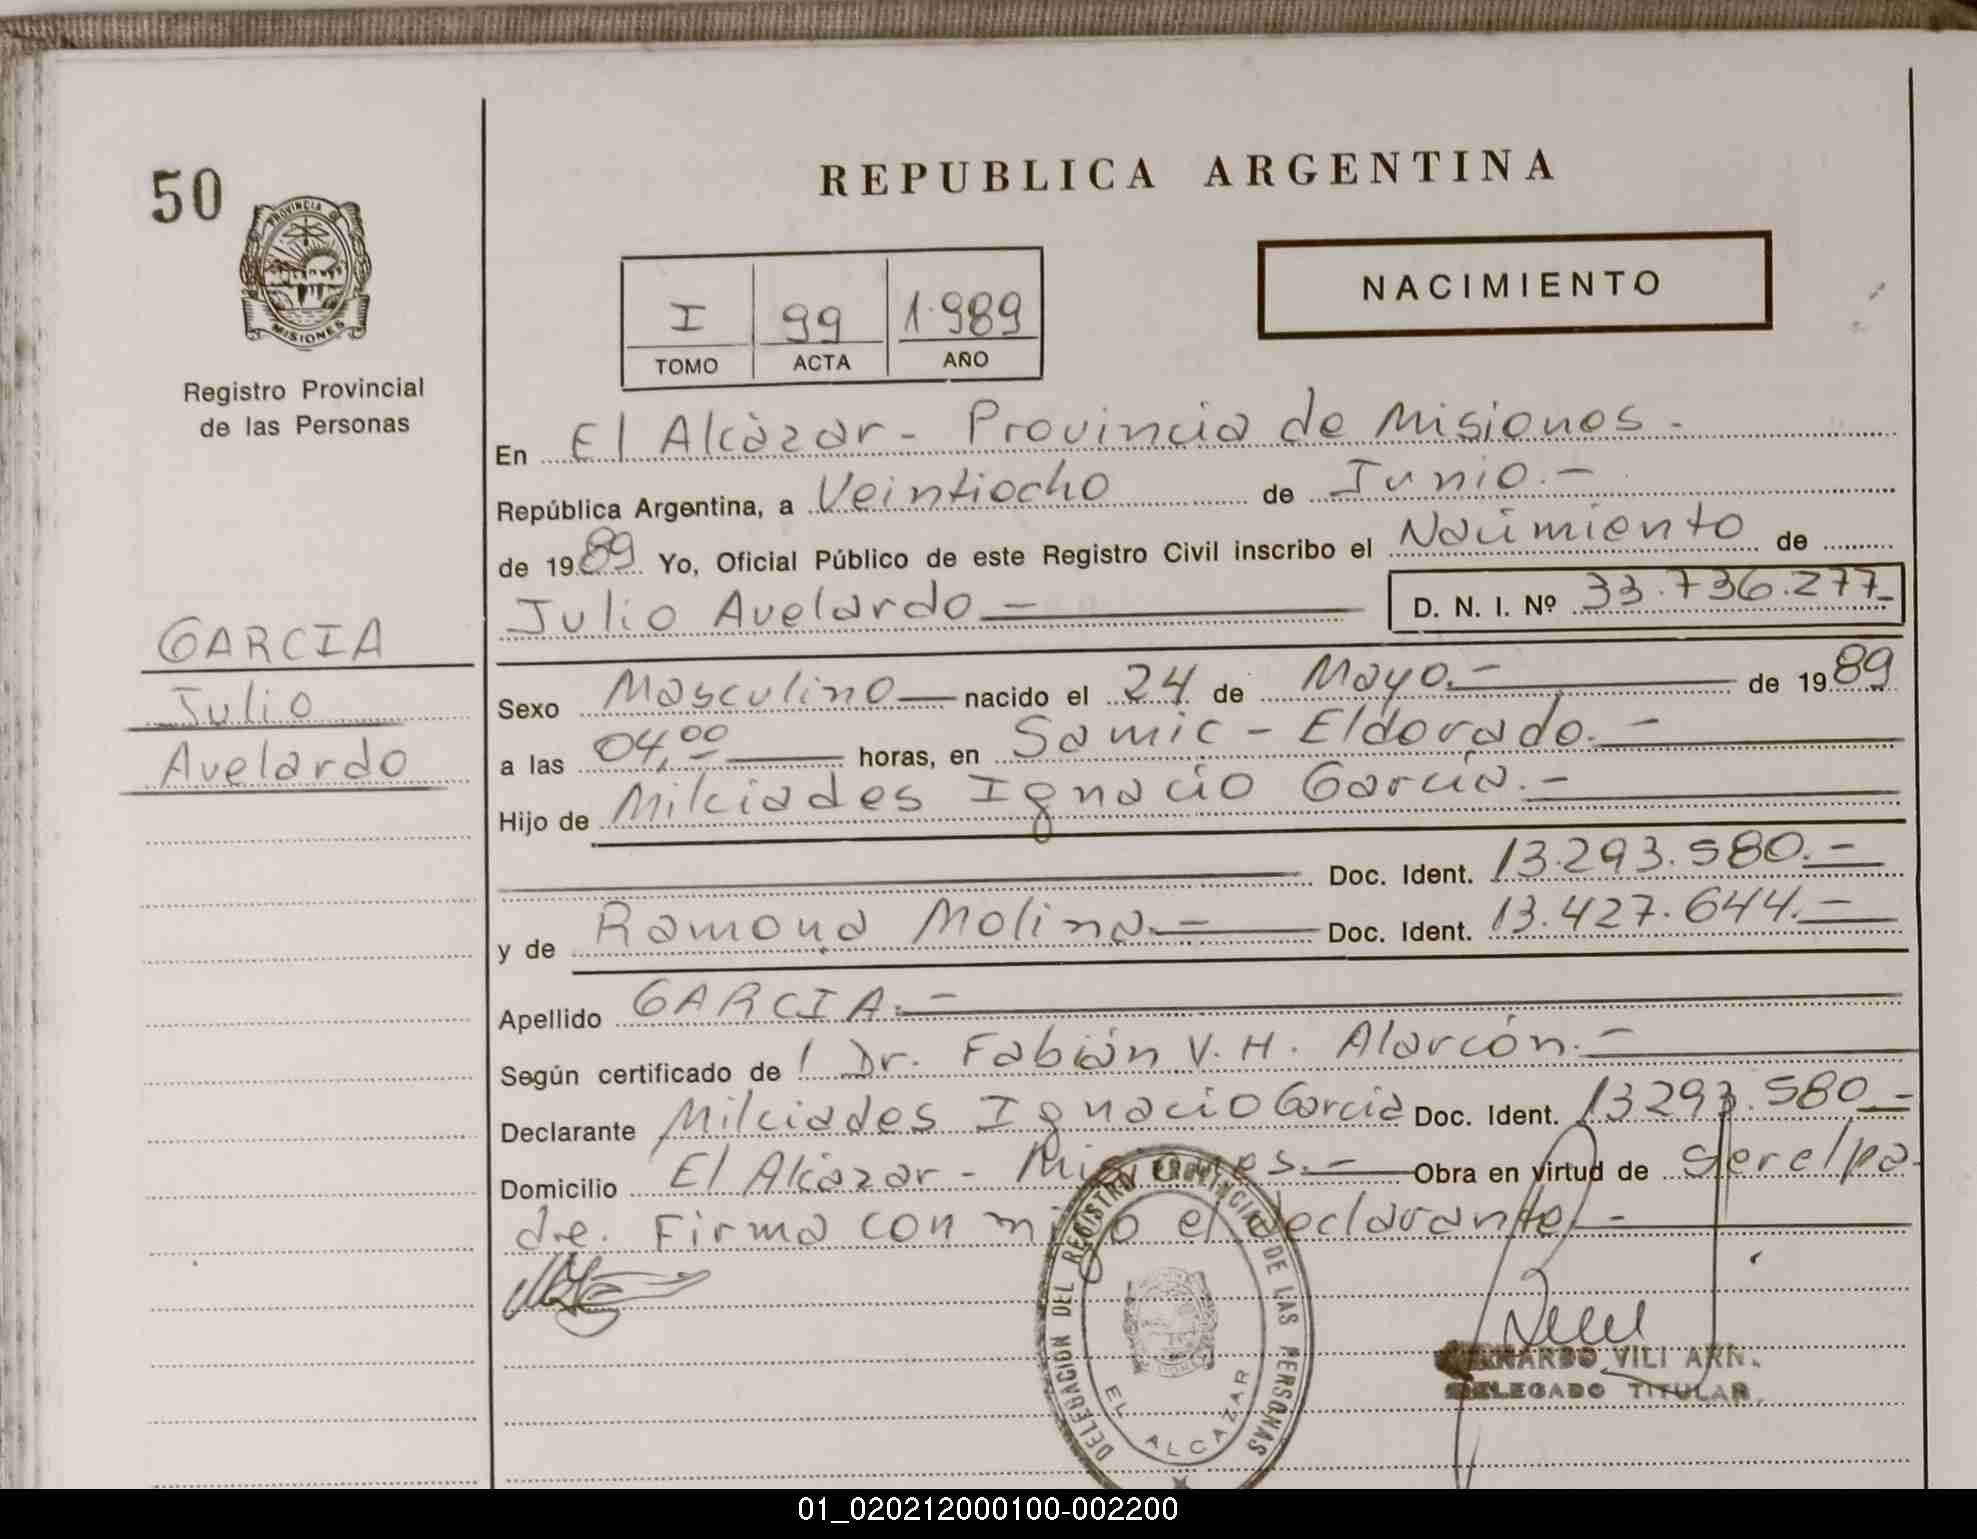 50
PROVINCIA DE
MISIONES
Registro Provincial
de las Personas
GARCIA
Julio
Avelardo
REPUBLICA ARGENTINA
NACIMIENTO
I 99 1.989
TOMO ACTA AÑO
En El Alcázar - Provincia de Misiones.-
República Argentina, a Veintiocho de Junio.-
de 1989 Yo, Oficial Público de este Registro Civil inscribo el Nacimiento de
Julio Avelardo - D. N. I. Nº 33.736.277-
Sexo Masculino nacido el 24 de Mayo.- de 1989
a las 04,00 horas, en Samic - Eldorado.-
Hijo de Milciades Ignacio García.-
Doc. Ident. 13.293.580.-
y de Ramona Molina.- Doc. Ident. 13.427.644.-
Apellido GARCIA.-
Según certificado de Dr. Fabián V. H. Alarcón.-
Declarante Milciades Ignacio Garcia Doc. Ident. 13293.580.-
Domicilio El Alcázar - Misiones.- Obra en virtud de ser el pa-
dre. Firma con migo el declarante.-
DELEGACION DEL REGISTRO PROVINCIAL DE LAS PERSONAS
EL ALCAZAR
VILI ARN.
DELEGADO TITULAR.
01_020212000100-002200